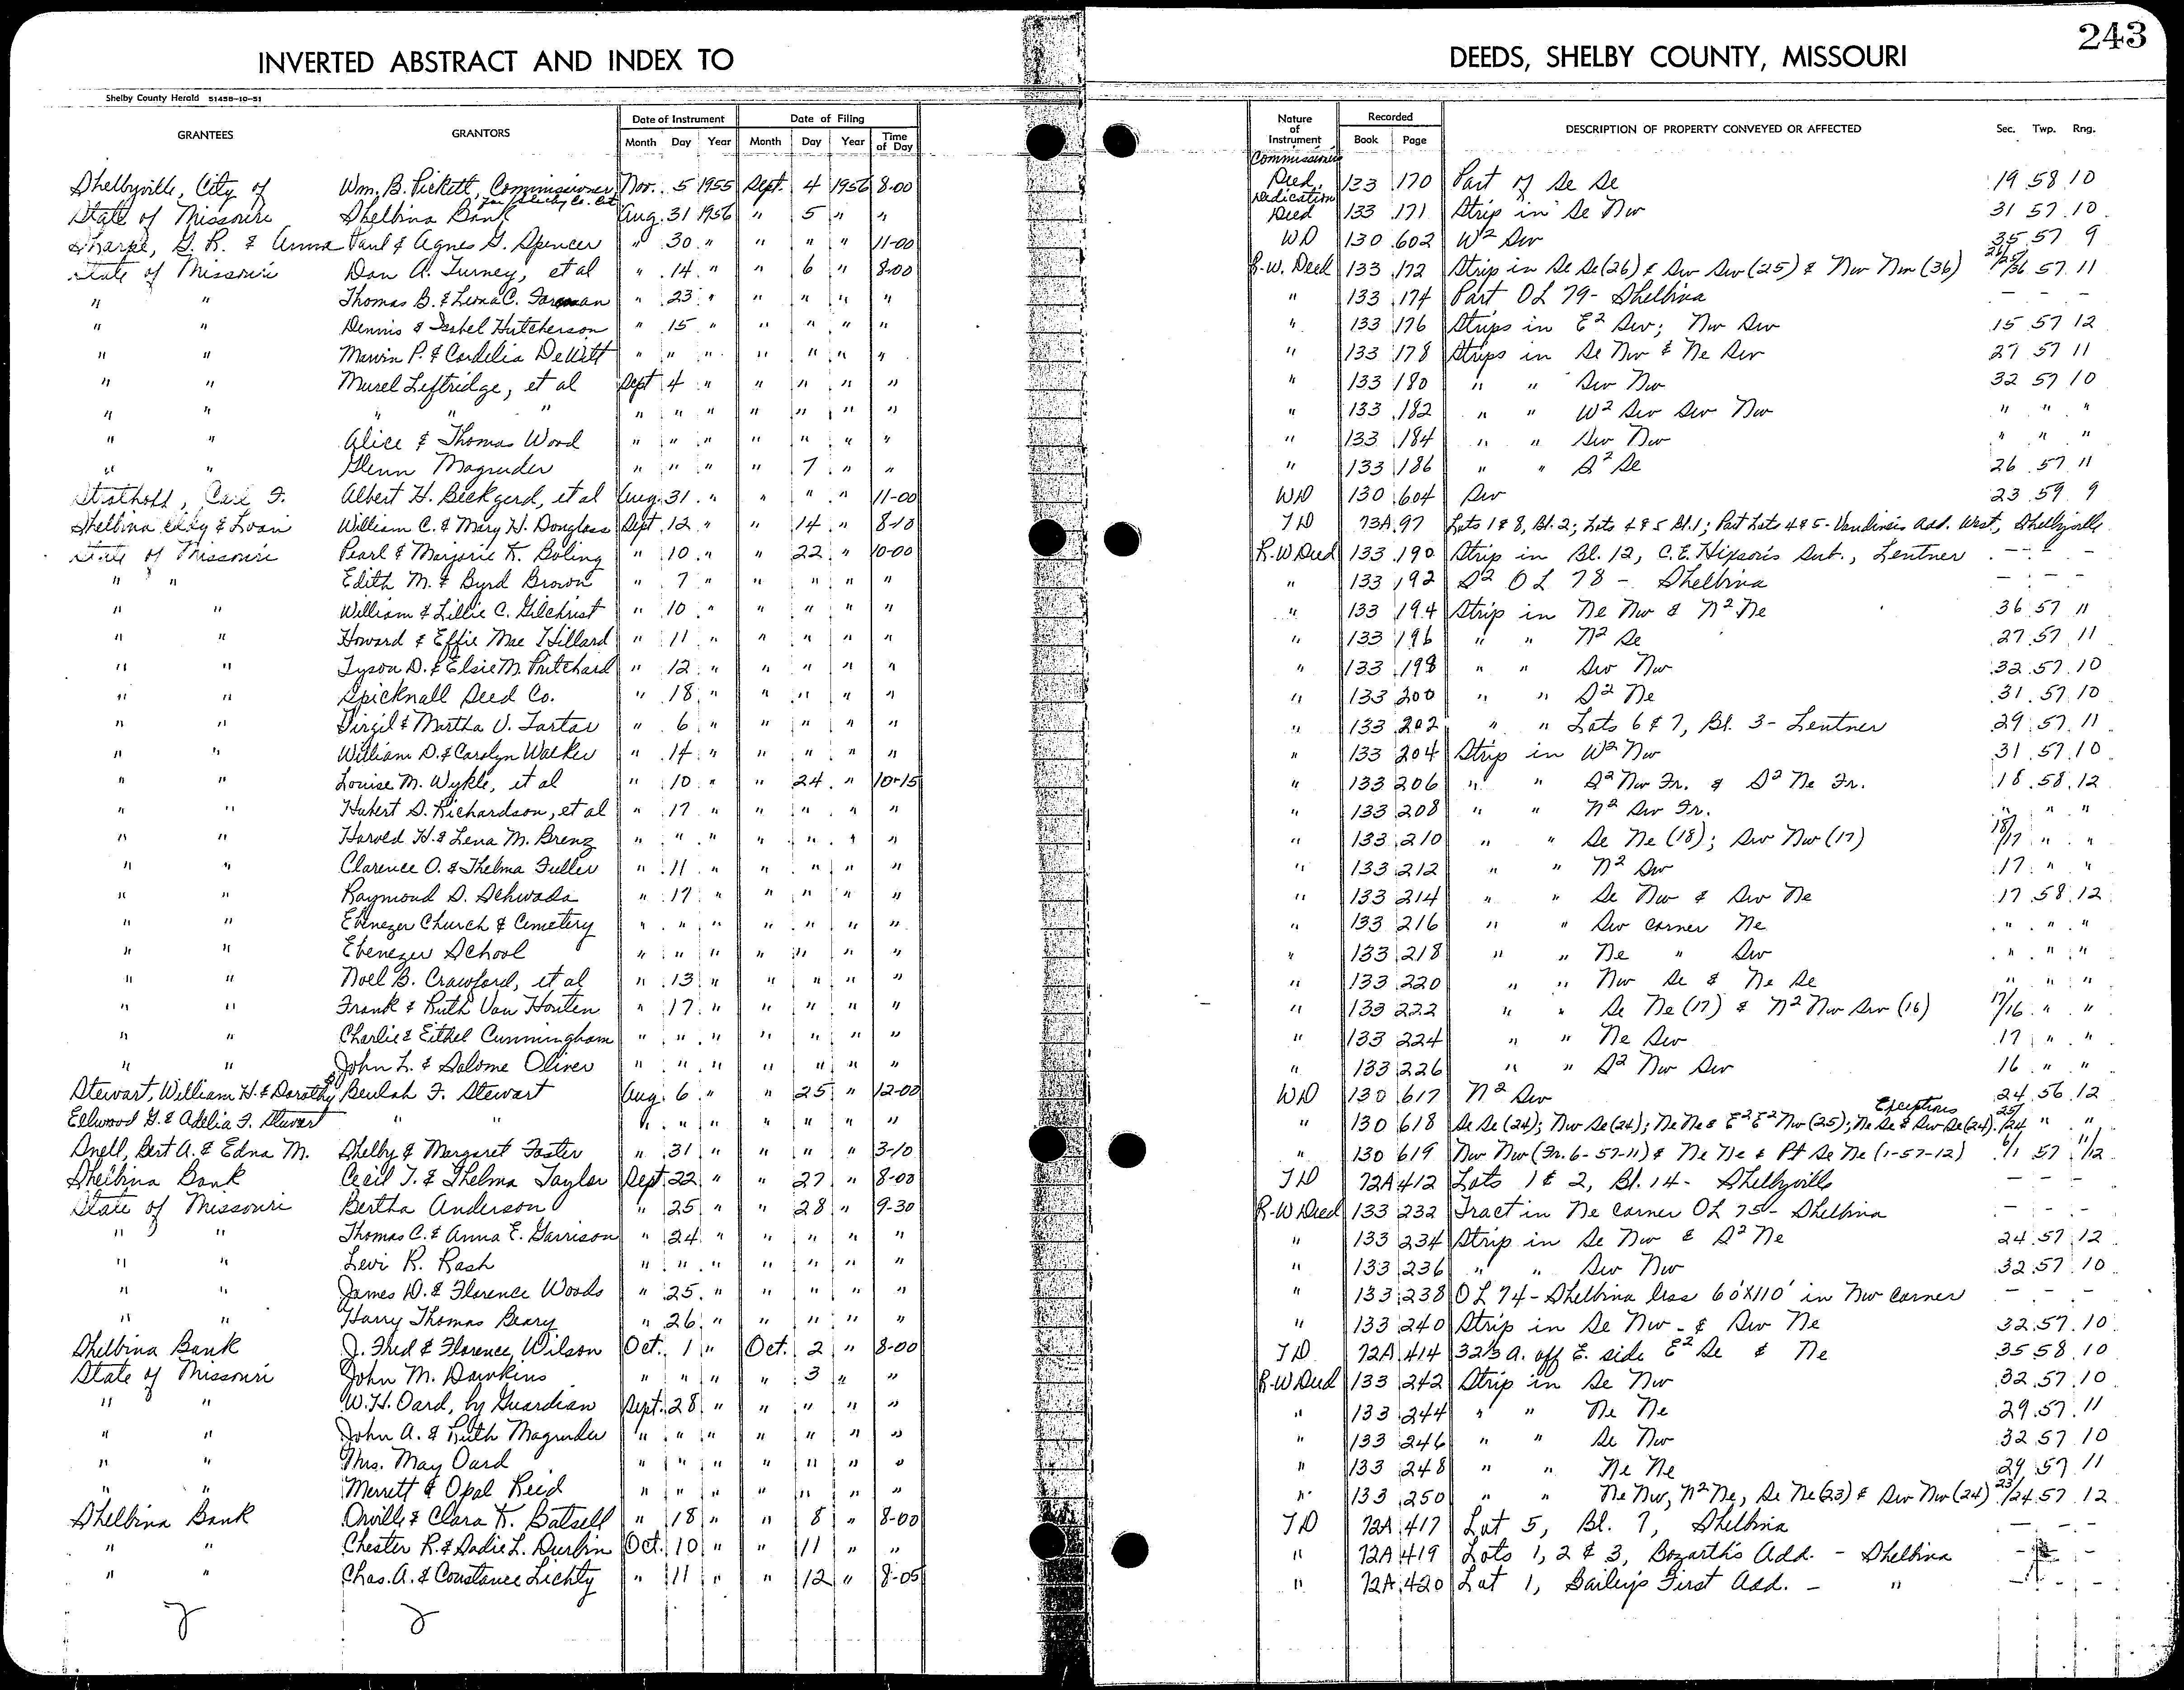 243
INVERTED ABSTRACT AND INDEX TO DEEDS, SHELBY COUNTY, MISSOURI
Shelby County Herald 51458-10-51
GRANTEES GRANTORS Date of Instrument Date of Filing Nature of Instrument Recorded DESCRIPTION OF PROPERTY CONVEYED OR AFFECTED Sec. Twp. Rng.
Month Day Year Month Day Year Time of Day Book Page
Shelbyville, City of Wm. B. Pickett, Commissioner for Shelby Co. Ct. Nov. 5 1955 Sept. 4 1956 8-00 Commissioners Deed 133 170 Part of Se Se 19 58 10
State of Missouri Shelbina Bank Aug. 31 1956 " 5 " " Dedication Deed 133 171 Strip in Se Nw 31 57 10
Sharpe, G. R. & Anna Paul & Agnes G. Spencer " 30 " " " " 11-00 WD 130 602 W2 Sw 35 57 9
State of Missouri Dan A. Turney, et al " 14 " " 6 " 8-00 R-W. Deed 133 172 Strip in Se Se (26) & Sw Sw (25) & Nw Nw (36) 26/25/36 57 11
" " Thomas B. & Leona C. Foreman " 23 " " " " " " 133 174 Part OL 79 - Shelbina - - -
" " Dennis & Isabel Hutcherson " 15 " " " " " " 133 176 Strips in E2 Sw; Nw Sw 15 57 12
" " Marvin P. & Cordelia DeWitt " " " " " " " " 133 178 Strips in Se Nw & Ne Sw 27 57 11
" " Murel Leftridge, et al Sept 4 " " " " " " 133 180 " " Sw Nw 32 57 10
" " " " " " " " " " " " " 133 182 " " W2 Sw Sw Nw " " "
" " Alice & Thomas Wood " " " " " " " " 133 184 " " Sw Nw " " "
" " Glenn Magruder " " " " 7 " " " 133 186 " " S2 Se 26 57 11
Strathoff, Carl F. Albert H. Beckgerd, et al Aug. 31 " " " " 11-00 WD 130 604 Sw 23 59 9
Shelbina Bldg & Loan William C. & Mary H. Douglass Sept 12 " " 14 " 8-10 TD 73A 97 Lots 1 & 8, Bl. 2; Lots 4 & 5 Bl. 1; Part Lots 4 & 5 - Vandivers Add. West, Shelbyville
State of Missouri Pearl & Marjorie K. Boling " 10 " " 22 " 10-00 R-W Deed 133 190 Strip in Bl. 12, C. E. Hixson's Sub., Lentner - - -
" " Edith M. & Byrd Brown " 7 " " " " " " 133 192 S2 OL 78 - Shelbina - - -
" " William & Lillie C. Gilchrist " 10 " " " " " " 133 194 Strip in Ne Nw & N2 Ne 36 57 11
" " Howard & Effie Mae Hillard " 11 " " " " " " 133 196 " " N2 Se 27 57 11
" " Tyson D. & Elsie M. Pritchard " 12 " " " " " " 133 198 " " Sw Nw 32 57 10
" " Spicknall Seed Co. " 18 " " " " " " 133 200 " " S2 Ne 31 57 10
" " Virgil & Martha V. Tartar " 6 " " " " " " 133 202 " " Lots 6 & 7, Bl. 3 - Lentner 29 57 11
" " William D. & Carolyn Walker " 14 " " " " " " 133 204 Strip in W2 Nw 31 57 10
" " Louise M. Wykle, et al " 10 " " 24 " 10-15 " 133 206 " " S2 Nw Fr. & S2 Ne Fr. 18 58 12
" " Hubert S. Richardson, et al " 17 " " " " " " 133 208 " " N2 Sw Fr. " " "
" " Harold H. & Lena M. Brenz " " " " " " " " 133 210 " " Se Ne (18); Sw Nw (17) 18/17 " "
" " Clarence O. & Thelma Fuller " 11 " " " " " " 133 212 " " N2 Sw 17 " "
" " Raymond S. Schwada " 17 " " " " " " 133 214 " " Se Nw & Sw Ne 17 58 12
" " Ebenezer Church & Cemetery " " " " " " " " 133 216 " " Sw corner Ne " " "
" " Ebenezer School " " " " " " " " 133 218 " " Ne " Sw " " "
" " Noel B. Crawford, et al " 13 " " " " " " 133 220 " " Nw Se & Ne Se " " "
" " Frank & Ruth Van Houten " 17 " " " " " " 133 222 " " Se Ne (17) & N2 Nw Sw (16) 17/16 " "
" " Charlie & Eithel Cunningham " " " " " " " " 133 224 " " Ne Sw 17 " "
" " John L. & Salome Oliver " " " " " " " " 133 226 " " S2 Nw Sw 16 " "
Stewart, William H. & Dorothy Beulah F. Stewart Aug. 6 " " 25 " 12-00 WD 130 617 N2 Sw 24 56 12
Ellwood G. & Adelia F. Stewart " " " " " " " " " " 130 618 Se Se (24); Nw Se (24); Ne Ne & E2 E2 Nw (25); Ne Se & Sw Se (24) Exceptions 25/24 " "
Snell, Bert A. & Edna M. Shelby & Margaret Foster " 31 " " " " 3-10 " 130 619 Nw Nw (Fr. 6-57-11) & Ne Ne & Pt Se Ne (1-57-12) 6/1 57 11/12
Shelbina Bank Cecil T. & Thelma Taylor Sept 22 " " 27 " 8-00 TD 72A 412 Lots 1 & 2, Bl. 14 - Shelbyville - - -
State of Missouri Bertha Anderson " 25 " " 28 " 9-30 R-W Deed 133 232 Tract in Ne corner OL 75 - Shelbina - - -
" " Thomas C. & Anna E. Garrison " 24 " " " " " " 133 234 Strip in Se Nw & S2 Ne 24 57 12
" " Levi R. Rash " " " " " " " " 133 236 " " Sw Nw 32 57 10
" " James D. & Florence Woods " 25 " " " " " " 133 238 OL 74 - Shelbina less 60'X110' in Nw corner - - -
" " Harry Thomas Beary " 26 " " " " " " 133 240 Strip in Se Nw - & Sw Ne 32 57 10
Shelbina Bank J. Fred & Florence Wilson Oct. 1 " Oct. 2 " 8-00 TD 72A 414 32 2/3 A. off E. side E2 Se & Ne 35 58 10
State of Missouri John M. Dawkins " " " " 3 " " R-W Deed 133 242 Strip in Se Nw 32 57 10
" " W. H. Oard, by Guardian Sept. 28 " " " " " " 133 244 " " Ne Ne 29 57 11
" " John A. & Ruth Magruder " " " " " " " " 133 246 " " Se Nw 32 57 10
" " Mrs. May Oard " " " " " " " " 133 248 " " Ne Ne 29 57 11
" " Merrett & Opal Reid " " " " " " " " 133 250 " " Ne Nw, N2 Ne, Se Ne (23) & Sw Nw (24) 23/24 57 12
Shelbina Bank Orville & Clara K. Batsell " 18 " " 8 " 8-00 TD 72A 417 Lot 5, Bl. 7, Shelbina - - -
" " Chester R. & Sadie L. Durbin Oct. 10 " " 11 " " " 72A 419 Lots 1, 2 & 3, Bozarth's Add. - Shelbina - - -
" " Chas. A. & Constance Lichty " 11 " " 12 " 8-05 " 72A 420 Lot 1, Bailey's First Add. - " - - -